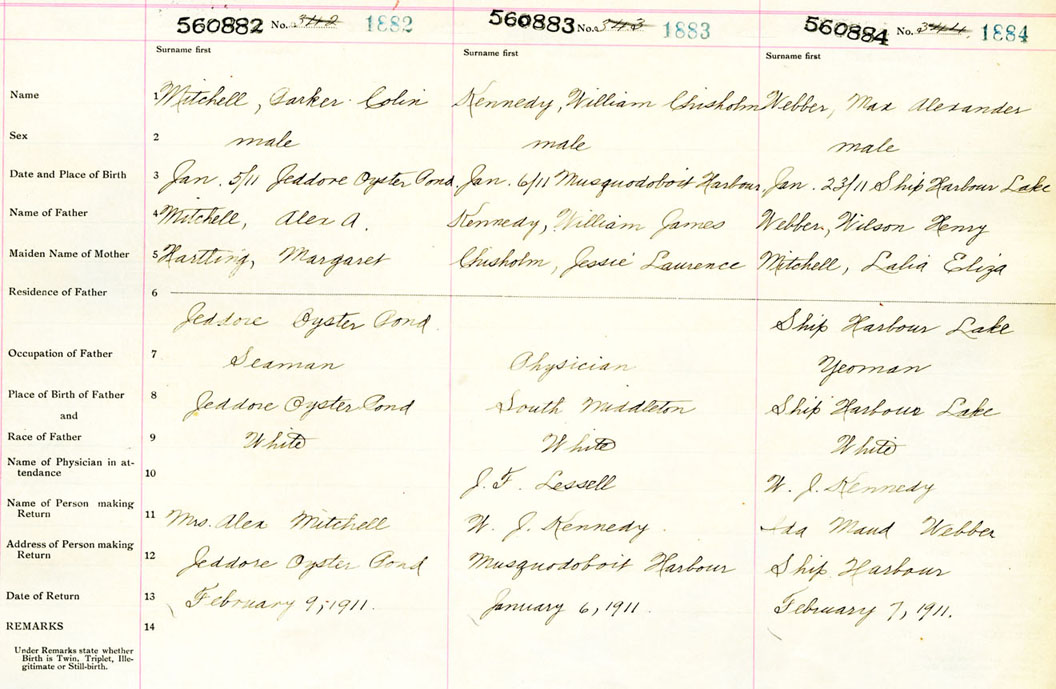 560882 No. 342 1882 560883 No. 343 1883 560884 No. 344 1884
Surname first Surname first Surname first
Name 1 Mitchell, Parker Colin Kennedy, William Chisholm Webber, Max Alexander
Sex 2 male male male
Date and Place of Birth 3 Jan. 5/11 Jeddore Oyster Pond. Jan. 6/11 Musquodoboit Harbour, Jan. 23/11 Ship Harbour Lake
Name of Father 4 Mitchell, Alex A. Kennedy, William James Webber, Wilson Henry
Maiden Name of Mother 5 Hartling, Margaret Chisholm, Jessie Laurence Mitchell, Lalia Eliza
Residence of Father 6
Jeddore Oyster Pond Ship Harbour Lake
Occupation of Father 7 Seaman Physician Yeoman
Place of Birth of Father 8 Jeddore Oyster Pond South Middleton Ship Harbour Lake
and
Race of Father 9 White White White
Name of Physician in at-
tendance 10 J. F. Lessell W. J. Kennedy
Name of Person making
Return 11 Mrs. Alex Mitchell W. J. Kennedy. Ida Maud Webber
Address of Person making
Return 12 Jeddore Oyster Pond Musquodoboit Harbour Ship Harbour
Date of Return 13 February 9, 1911. January 6, 1911. February 7, 1911.
REMARKS 14
Under Remarks state whether
Birth is Twin, Triplet, Ille-
gitimate or Still-birth.